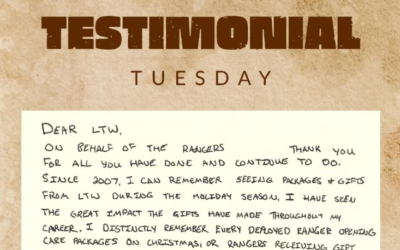 TESTIMONIAL
TUESDAY
DEAR LTW,
ON BEHALF OF THE RANGERS THANK YOU
FOR ALL YOU HAVE DONE AND CONTINUE TO DO.
SINCE 2007, I CAN REMEMBER SEEING PACKAGES & GIFTS
FROM LTW DURING THE HOLIDAY SEASON. I HAVE SEEN
THE GREAT IMPACT THE GIFTS HAVE MADE THROUGHOUT MY
CAREER. I DISTINCTLY REMEMBER EVERY DEPLOYED RANGER OPENING
CARE PACKAGES ON CHRISTMAS, OR RANGERS RECEIVING GIFT